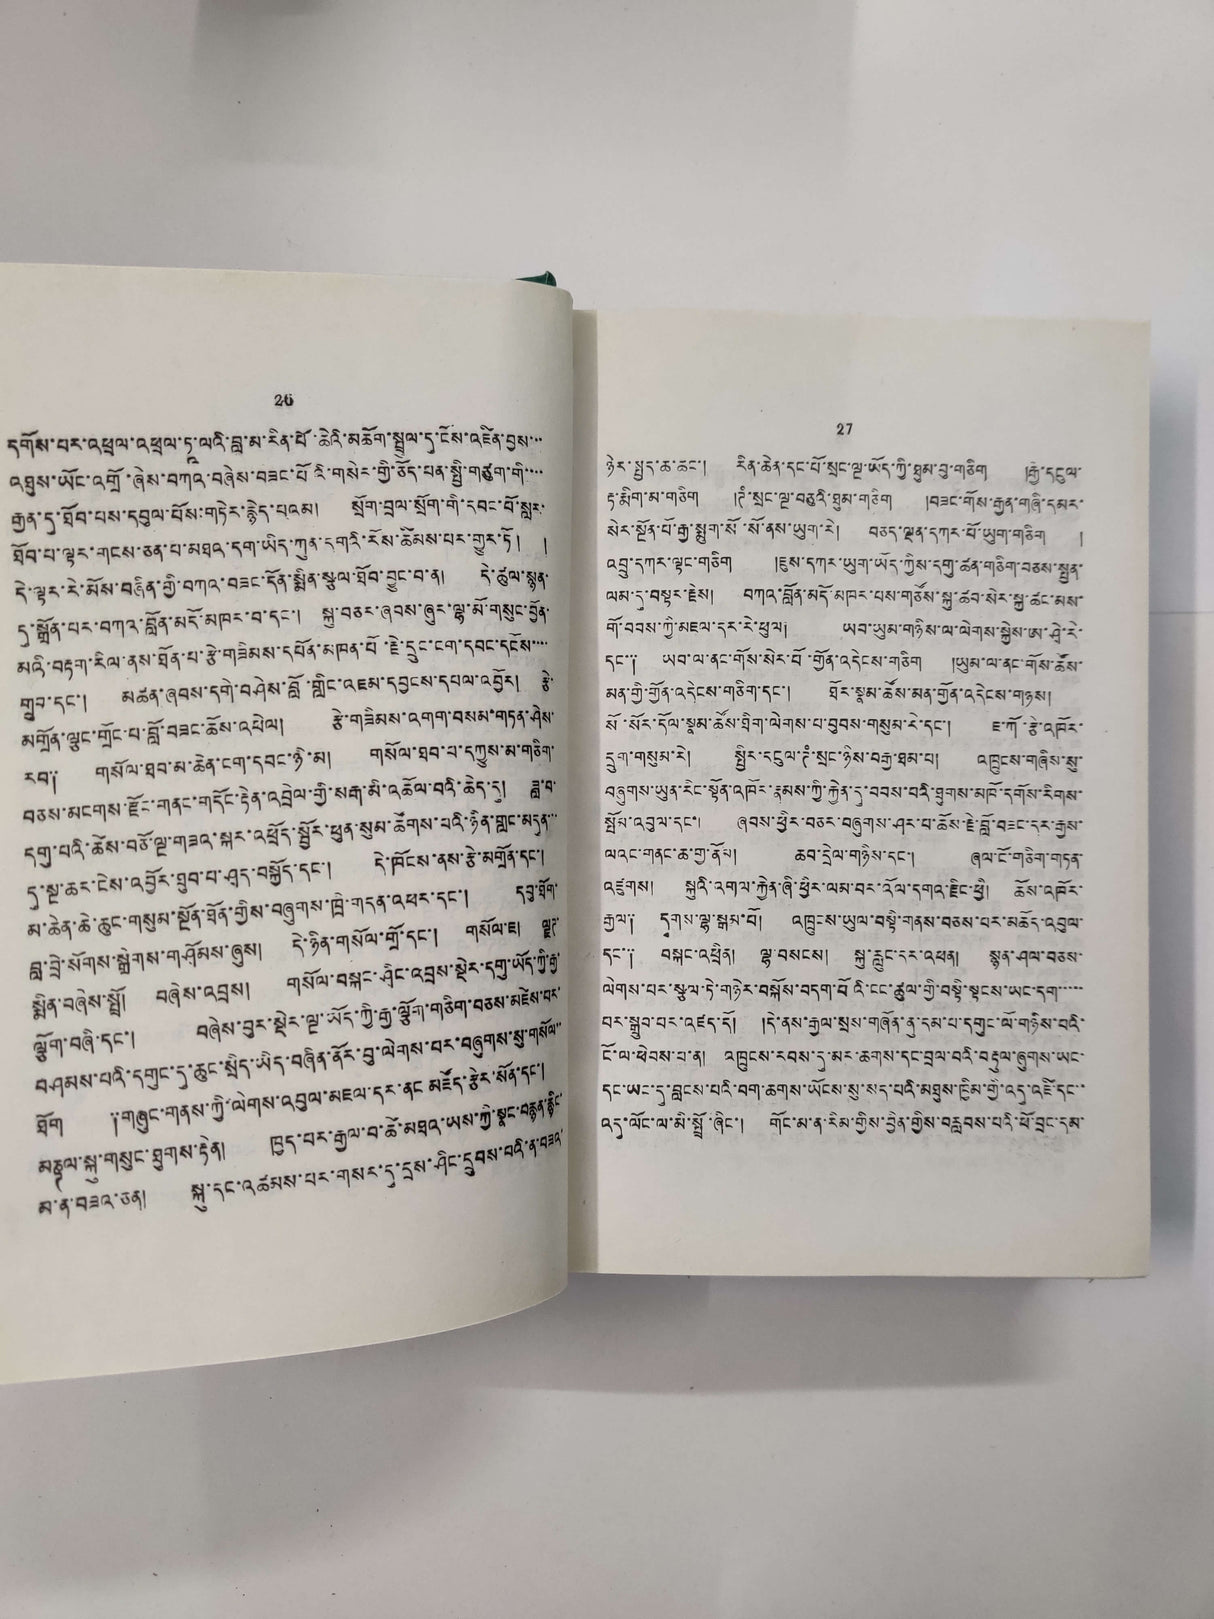 26
དགོས་པར་འཕྲལ་འཕྲལ་ཏཱ་ལའི་བླ་མ་རིན་པོ་ཆེའི་མཆོག་སྤྲུལ་དུ་ངོས་འཛིན་བྱས་…
འཐུས་ཡོང་འགྲོ་ཞེས་བཀའ་བཞེས་བཟང་པོའི་གསེར་གྱི་ཅོད་པན་སྤྱི་གཙུག་གི་…
རྒྱན་དུ་ཐོབ་པས་དབུལ་པོས་གཏེར་རྙེད་པའམ། སྲོག་བྲལ་སྲོག་གི་དབང་པོ་སླར་
ཐོབ་པ་ལྟར་གངས་ཅན་པ་མཐའ་དག་ཡིད་ཀུན་དགའི་རོས་ཚིམས་པར་གྱུར་ཏོ། །
དེ་ལྟར་རེ་མོས་བཞིན་གྱི་བཀའ་བཟང་དོན་སྨིན་སྩལ་ཐོབ་བྱུང་བ་ན། དེ་ཚུལ་སྙན་
དུ་སྒྲོན་པར་བཀའ་བློན་མདོ་མཁར་བ་དང་། སྐུ་བཅར་ཞབས་ཞུར་ལྷ་མོ་གསུང་བྱོན་
མའི་བརྟག་རིལ་ནས་ཐོན་པ་རྩེ་གཟིམས་དཔོན་མཁན་པོ་རྗེ་དྲུང་ངག་དབང་དངོས་…
གྲུབ་དང་། མཚན་ཞབས་དགེ་བཤེས་བློ་གླིང་འཇམ་དབྱངས་དཔལ་འབྱོར། རྩེ་
མགྲོན་ལྕང་གྲོང་པ་བློ་བཟང་ཆོས་འཕེལ། རྩེ་གཟིམས་འགག་བསམ་གཏན་ཤེས་
རབ༎ གསོལ་ཐབ་མ་ཆེན་ངག་དབང་ཉི་མ། གསོལ་ཐབ་པ་དཀྱུས་མ་གཅིག་
བཅས་མངགས་རྫོང་གནང་གདོང་རྟེན་འབྲེལ་གྱི་སརྒ་མི་འཚོལ་བའི་ཆེད་དུ། ཟླ་བ་
དགུ་པའི་ཚེས་བཅོ་ལྔ་གཟའ་སྐར་འཕྲོད་སྦྱོར་ཕུན་སུམ་ཚོགས་པའི་ཉིན་གླང་མདུན་…
དུ་སྔ་ཆར་ངེས་འབྱོར་ཐུབ་པ་ཤད་བསྐྱོད་དང་། དེ་ཁོངས་ནས་རྩེ་མགྲོན་དང་།
མ་ཆེན་ཆེ་ཆུང་གསུམ་སྔོན་ཐོན་གྱིས་བཞུགས་ཁྲི་གདན་འཕར་དང་། དབུ་ཐོག་
བླ་བྲེ་སོགས་སྒྲིགས་གཤོམས་ཞུས། དེ་ཉིན་གསོལ་གྲོ་དང་། གསོལ་ཇ།
སྨིན་བཞེས་སྤྲོ། བཞེས་འབྲས། གསོལ་བསྐང་ཤིང་འབྲས་སྡེར་དགུ་ཡོད་ཀྱི་རྒྱ་
ལྕོག་བཞི་དང་། བཞེས་བུར་སྡེར་ལྔ་ཡོད་ཀྱི་རྒྱ་ལྕོག་གཅིག་བཅས་མཛེས་པར་
བཤམས་པའི་དགུང་དུ་ཆུང་སྲིད་ཡིད་བཞིན་ནོར་བུ་ལེགས་པར་བཞུགས་སུ་གསོལ་
ཐོག ༎གཞུང་གནས་ཀྱི་ལེགས་འབུལ་མཇལ་དར་ནང་མཛོད་རྩེར་སོན་དང་།
མཎྜལ་སྐུ་གསུང་ཐུགས་རྟེན། ཁྱད་པར་རྒྱལ་བ་ཚེ་མཐའ་ཡས་ཀྱི་སྣང་བརྙན་རྙིང་
མ་ན་བཟའ་ཅན། སྐུ་དང་འཚམས་པར་གསར་དུ་དྲས་ཤིང་དྲུབས་པའི་ན་བཟའ་
27
ཉེར་སྤྱད་ཆ་ཚང་། རིན་ཆེན་དང་པོ་སྲང་ལྔ་ཡོད་ཀྱི་ཐུམ་བུ་གཅིག །རྒྱ་དངུལ་
རྟ་རྨིག་མ་གཅིག །དོཾ་སྲང་ལྔ་བཅུའི་ཐུམ་གཅིག །བཟང་གོས་རྒྱན་གཞི་དམར་
སེར་སྔོན་པོ་རྒྱ་སྨུག་སོ་སོ་ནས་ཡུག་རེ། བཅད་ལྡན་དཀར་པོ་ཡུག་གཅིག །
འབྲུ་དཀར་ལྟང་གཅིག །ཇུས་དཀར་ཡུག་ཡོད་ཀྱིས་དགུ་ཚན་གཅིག་བཅས་སྤྱན་
ལམ་དུ་བསྟར་རྗེས། བཀའ་བློན་མདོ་མཁར་པས་གཙོས་སྐུ་ཚབ་སེར་སྐྱ་ཚང་མས་
གོ་བབས་ཀྱི་མཇལ་དར་རེ་ཕུལ། ཡབ་ཡུམ་གཉིས་ལ་ལེགས་སྐྱེས་ཨ་ཤེ་རེ་
དང་༎ ཡབ་ལ་ནང་གོས་སེར་པོ་གྱོན་འདེངས་གཅིག །ཡུམ་ལ་ནང་གོས་ཆོས་
མན་གྱི་གྱོན་འདེངས་གཅིག་དང་། ཐོར་སྣམ་ཆོས་མན་གྱོན་འདེངས་གཉས།
སོ་སོར་དོལ་སྣམ་ཚོས་ཤིག་ལེགས་པ་བུབས་གསུམ་རེ་དང་། ཇ་ཀོ་རྩེ་འཁོར་
དྲུག་གསུམ་རེ། སྤྱིར་དངུལ་དོཾ་སྲང་ཉིས་བརྒྱ་ཐམ་པ། འཁྲུངས་གཞིས་སུ་
བཞུགས་ཡུན་རིང་སྟོན་འཁོར་རྣམས་ཀྱི་རྐྱེན་དུ་བབས་བའི་ཐུགས་མཁོ་དགོས་རིགས་
སྤྲོས་འབུལ་དང་། ཞབས་ཕྱིར་བཅར་བཞུགས་ཤར་པ་ཆོས་རྗེ་བློ་བཟང་དར་རྒྱས་
ལའང་གནང་ཆ་གྱ་ནོམ། ཆབ་དྲེལ་གཉིས་དང་། ཞལ་ངོ་གཅིག་གཏན་
འཛུགས། སྐུའི་འགལ་རྐྱེན་ཞི་ཕྱིར་ལམ་བར་འོལ་དགའ་རྫིང་ཕྱི། ཆོས་འཁོར་
རྒྱལ༎ དྭགས་ལྷ་སྒམ་པོ། འཁྲུངས་ཡུལ་བསྟི་གནས་བཅས་པར་མཆོད་འབུལ་
དང་༎ བསྐང་འཕྲིན། ལྷ་བསངས། སྐུ་རླུང་དར་འཕན། སྙན་ཤལ་བཅས་
ལེགས་པར་སྩལ་ཏེ་གཉེར་བསྐོས་བདག་པོའི་ངང་ཚུལ་གྱི་བསྟི་སྟངས་ཡང་དག་…
པར་སྒྲུབ་པར་འཛད་དོ། །དེ་ནས་རྒྱལ་སྲས་གཞོན་ནུ་དམ་པ་དགུང་ལོ་གཉིས་པའི་
ངོ་ལ་ཕེབས་པ་ན། འཁྲུངས་རབས་དུ་མར་ཆགས་དང་བྲལ་བའི་བརྟུལ་ཞུགས་ཡང་
དང་ཡང་དུ་བླངས་པའི་བག་ཆགས་ཡོངས་སུ་སད་པའི་མཐུས་ཁྱིམ་གྱི་འདུ་འཛི་དང་
འདུ་ལོང་ལ་མི་སྤྲོ་ཞིང་། གོང་མ་ན་རིམ་གྱིས་བྱིན་གྱིས་བརླབས་པའི་ཕོ་བྲང་དམ་